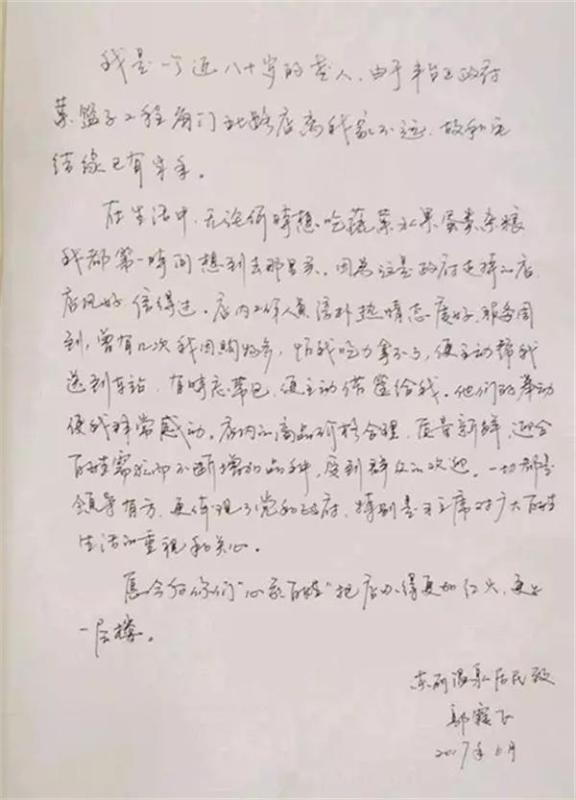 我是一个近八十岁的老人，由于丰台区政府
菜篮子工程角门北路店离我家不远，故和它
结缘已有半年。
在生活中，无论何时想吃蔬菜水果蛋类杂粮
我都第一时间想到去那里买。因为这是政府支持的店，
店风好，信得过。店内工作人员淳朴热情态度好，服务周
到，曾有几次我因购物多，怕我吃力拿不了，便主动帮我
送到车站，有时忘带包，便主动借筐给我。他们的举动
使我非常感动。店内的商品价格合理，质量新鲜，迎合
百姓需求而不断增加品种，受到群众的欢迎。一切都是
领导有方，更体现了党和政府，特别是习主席对广大百姓
生活的重视和关心。
愿今后你们“心系百姓”把店办得更加红火，更上
一层楼。
居民
2017年6月